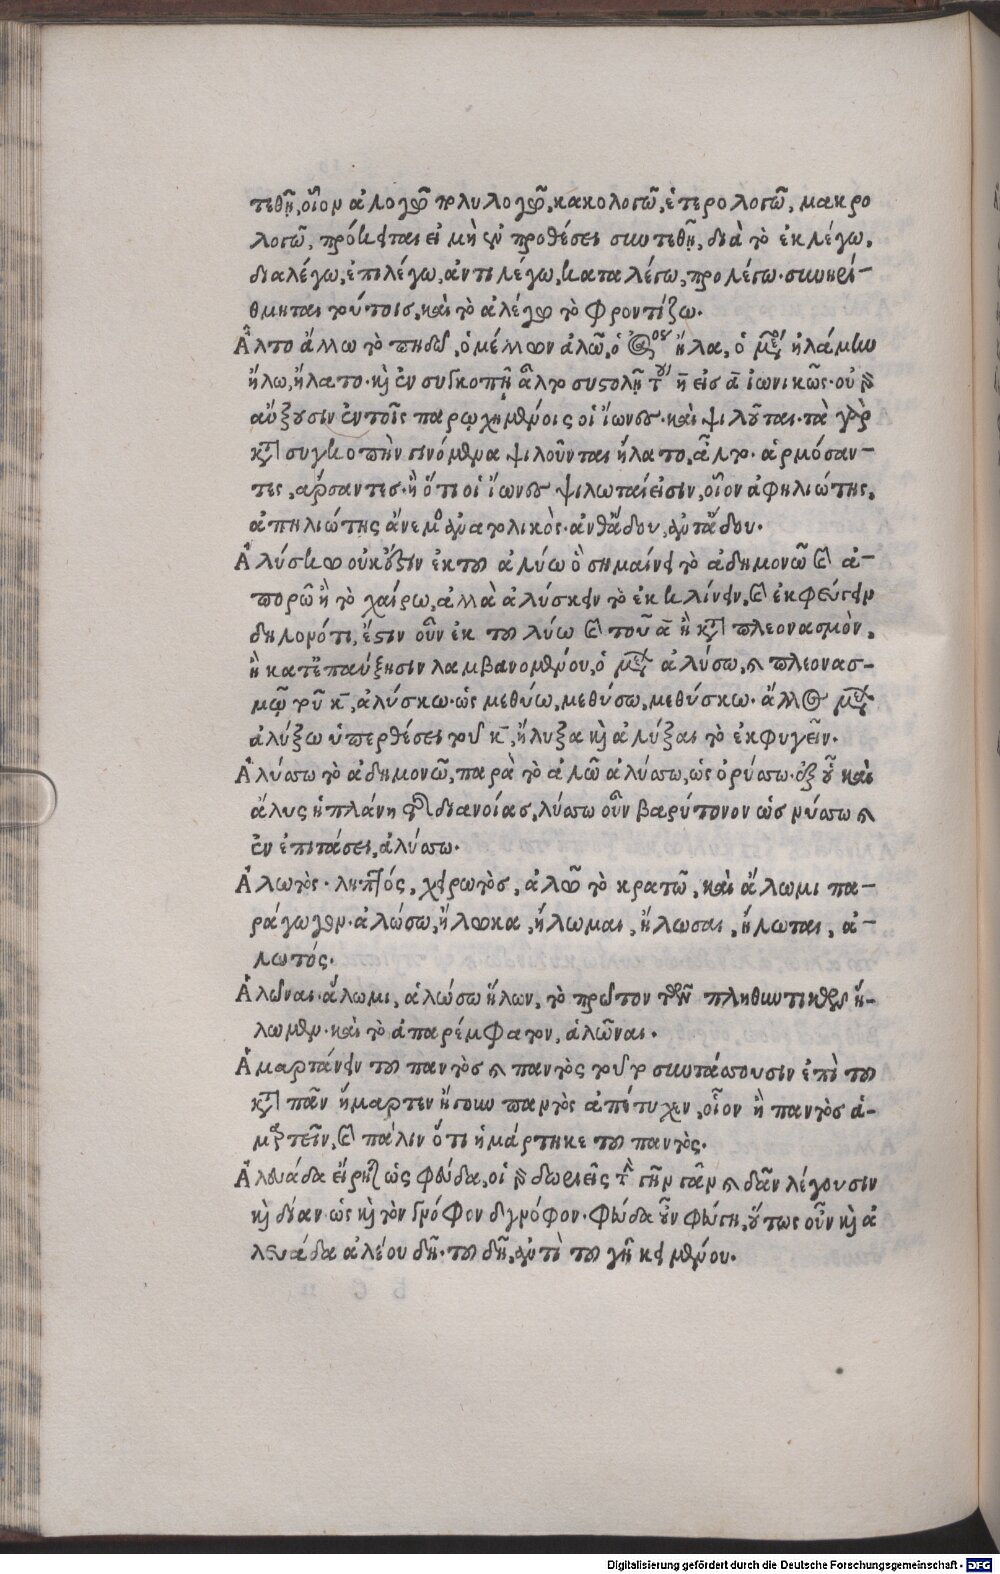 τεθῇ, οἷον ἀλογῶ φλυλογῶ, κακολογῶ, ἑτερολογῶ, μακρο
λογῶ, πρόκειται εἰ μὴ σὺν προθέσει συντεθῇ, διὰ τὸ ἐκλέγω,
διαλέγω, ἐπιλέγω, ἀντιλέγω, καταλέγω, προλέγω. συνηρί-
θμηται τούτοις, καὶ τὸ ἀλέγω τὸ φροντίζω.
Ἆλτο ἄλλω τὸ πηδῶ, ὁ μέλλων ἀλῶ, ὁ ἀόριστος ἤλα, ὁ μέσος ἠλάμην
ἤλω, ἤλατο. καὶ ἐν συγκοπῇ ἆλτο συστολῇ τοῦ η εἰς α ἰωνικῶς. οὐ γὰρ
αὔξουσιν ἐν τοῖς παρῳχημένοις οἱ ἴωνες. καὶ ψιλοῦται. τὰ γὰρ
κατὰ συγκοπὴν γινόμενα ψιλοῦνται ἤλατο, ἆλτο. ἁρμόσαν-
τες, ἄρσαντες. ἢ ὅτι οἱ ἴωνες ψιλωταί εἰσιν, οἷον ἀφηλιώτης,
ἀπηλιώτης ἄνεμος ἀνατολικὸς. ἀνθάδου, ἀντάδου.
Ἀλύσκω οὐκοῦν ἐκ τοῦ ἀλύω ὃ σημαίνει τὸ ἀδημονῶ καὶ ἀ-
πορῶ ἢ τὸ χαίρω, ἀλλὰ ἀλύσκειν τὸ ἐκκλίνειν, καὶ ἐκφεύγειν
δηλονότι, ἔστιν οὖν ἐκ τοῦ λύω καὶ τοῦ α ἢ κατὰ πλεονασμὸν,
ἢ κατ' ἐπαύξησιν λαμβανομένου, ὁ μέλλων ἀλύσω, καὶ πλεονασ-
μῷ τοῦ κ, ἀλύσκω. ὡς μεθύω, μεθύσω, μεθύσκω. ἄλλος μέλλων
ἀλύξω ὑπερθέσει τοῦ κ, ἤλυξα καὶ ἀλύξαι τὸ ἐκφυγεῖν.
Ἀλύσσω τὸ ἀδημονῶ, παρὰ τὸ ἀλῶ ἀλύσσω, ὡς ὀρύσσω. ἐξ οὗ καὶ
ἄλυς ἡ πλάνη τῆς διανοίας, λύσσω οὖν βαρύτονον ὡς νύσσω καὶ
ἐν ἐπιτάσει, ἀλύσσω.
Ἁλωτὸς. ληπτός, χειρωτὸς, ἁλῶ τὸ κρατῶ, καὶ ἅλωμι πα-
ράγωγον. ἁλώσω, ἥλωκα, ἥλωμαι, ἥλωσαι, ἥλωται, ἁ-
λωτός.
Ἁλῶναι. ἅλωμι, ἁλώσω ἥλων, τὸ πρῶτον τῶν πληθυντικῶν ἥ-
λωμεν. καὶ τὸ ἀπαρέμφατον, ἁλῶναι.
Ἁμαρτάνειν τοῦ παντὸς καὶ παντὸς τοῦ τ συντάσσουσιν ἐπὶ τοῦ
κατὰ πᾶν ἥμαρτεν ἤγουν παντὸς ἀπέτυχεν, οἷον ἢ παντὸς ἁ-
μαρτεῖν, καὶ πάλιν ὅτι ἡμάρτηκε τοῦ παντὸς.
Ἀλευάδα εἴρηται ὡς φεύδα, οἱ γὰρ δωριεῖς τὴν γῆν γᾶν καὶ δᾶν λέγουσιν
καὶ δύαν ὡς καὶ τὸν γνόφον δνόφον. φεύδα οὖν φεύγη, οὕτως οὖν καὶ ἀ
λευάδα ἀλέου δῆ. τοῦ δῆ, ἀντὶ τοῦ γῆ κειμένου.
Digitalisierung gefördert durch die Deutsche Forschungsgemeinschaft - DFG